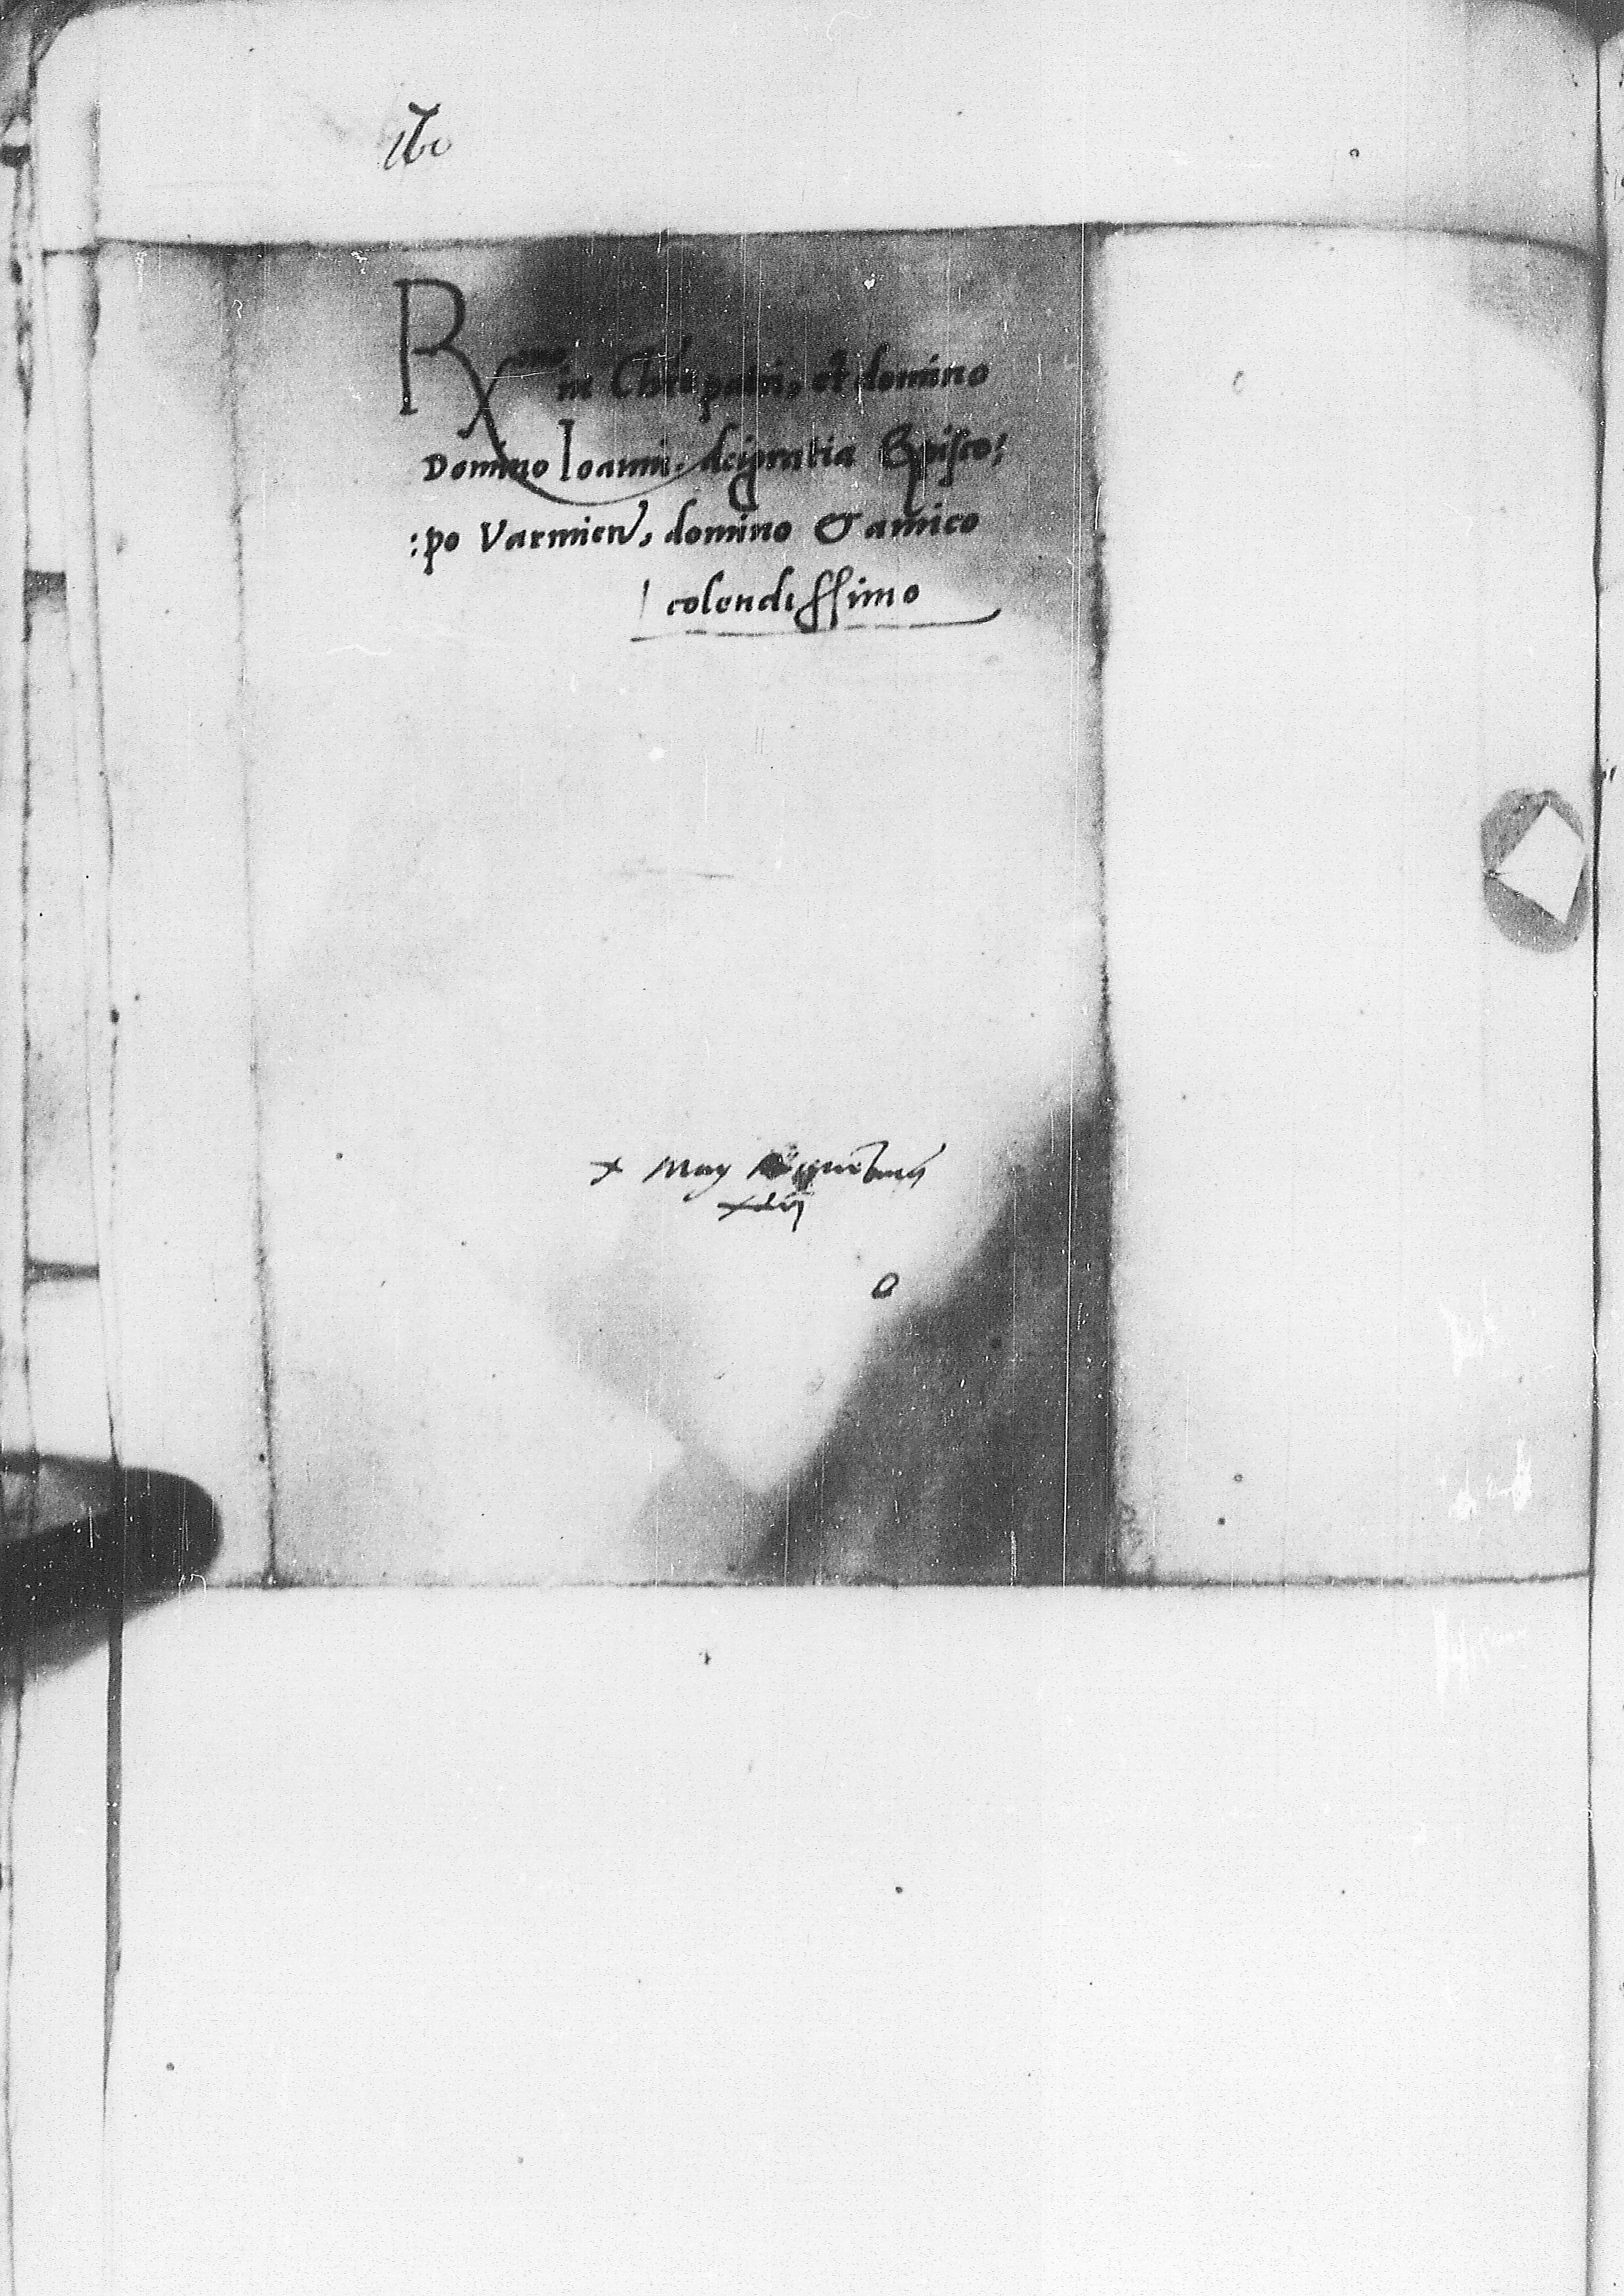 R<sup>mo</sup> in Chr̃o patri, et domino
Domino Ioanni dei gratia Episco:
:po Varmieñ, domino & amico
colendissimo
x May
xlij